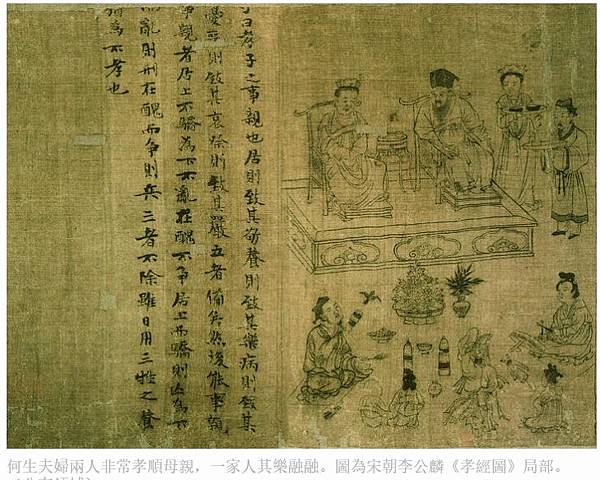 子曰孝子之事親也居則致其敬養則致其樂病則致其
憂喪則致其哀祭則致其嚴五者備矣然後能事親
事親者居上不驕為下不亂在醜不爭居上而驕則亡為下
而亂則刑在醜而爭則兵三者不除雖日用三牲之養
猶為不孝也
何生夫婦兩人非常孝順母親，一家人其樂融融。圖為宋朝李公麟《孝經圖》局部。